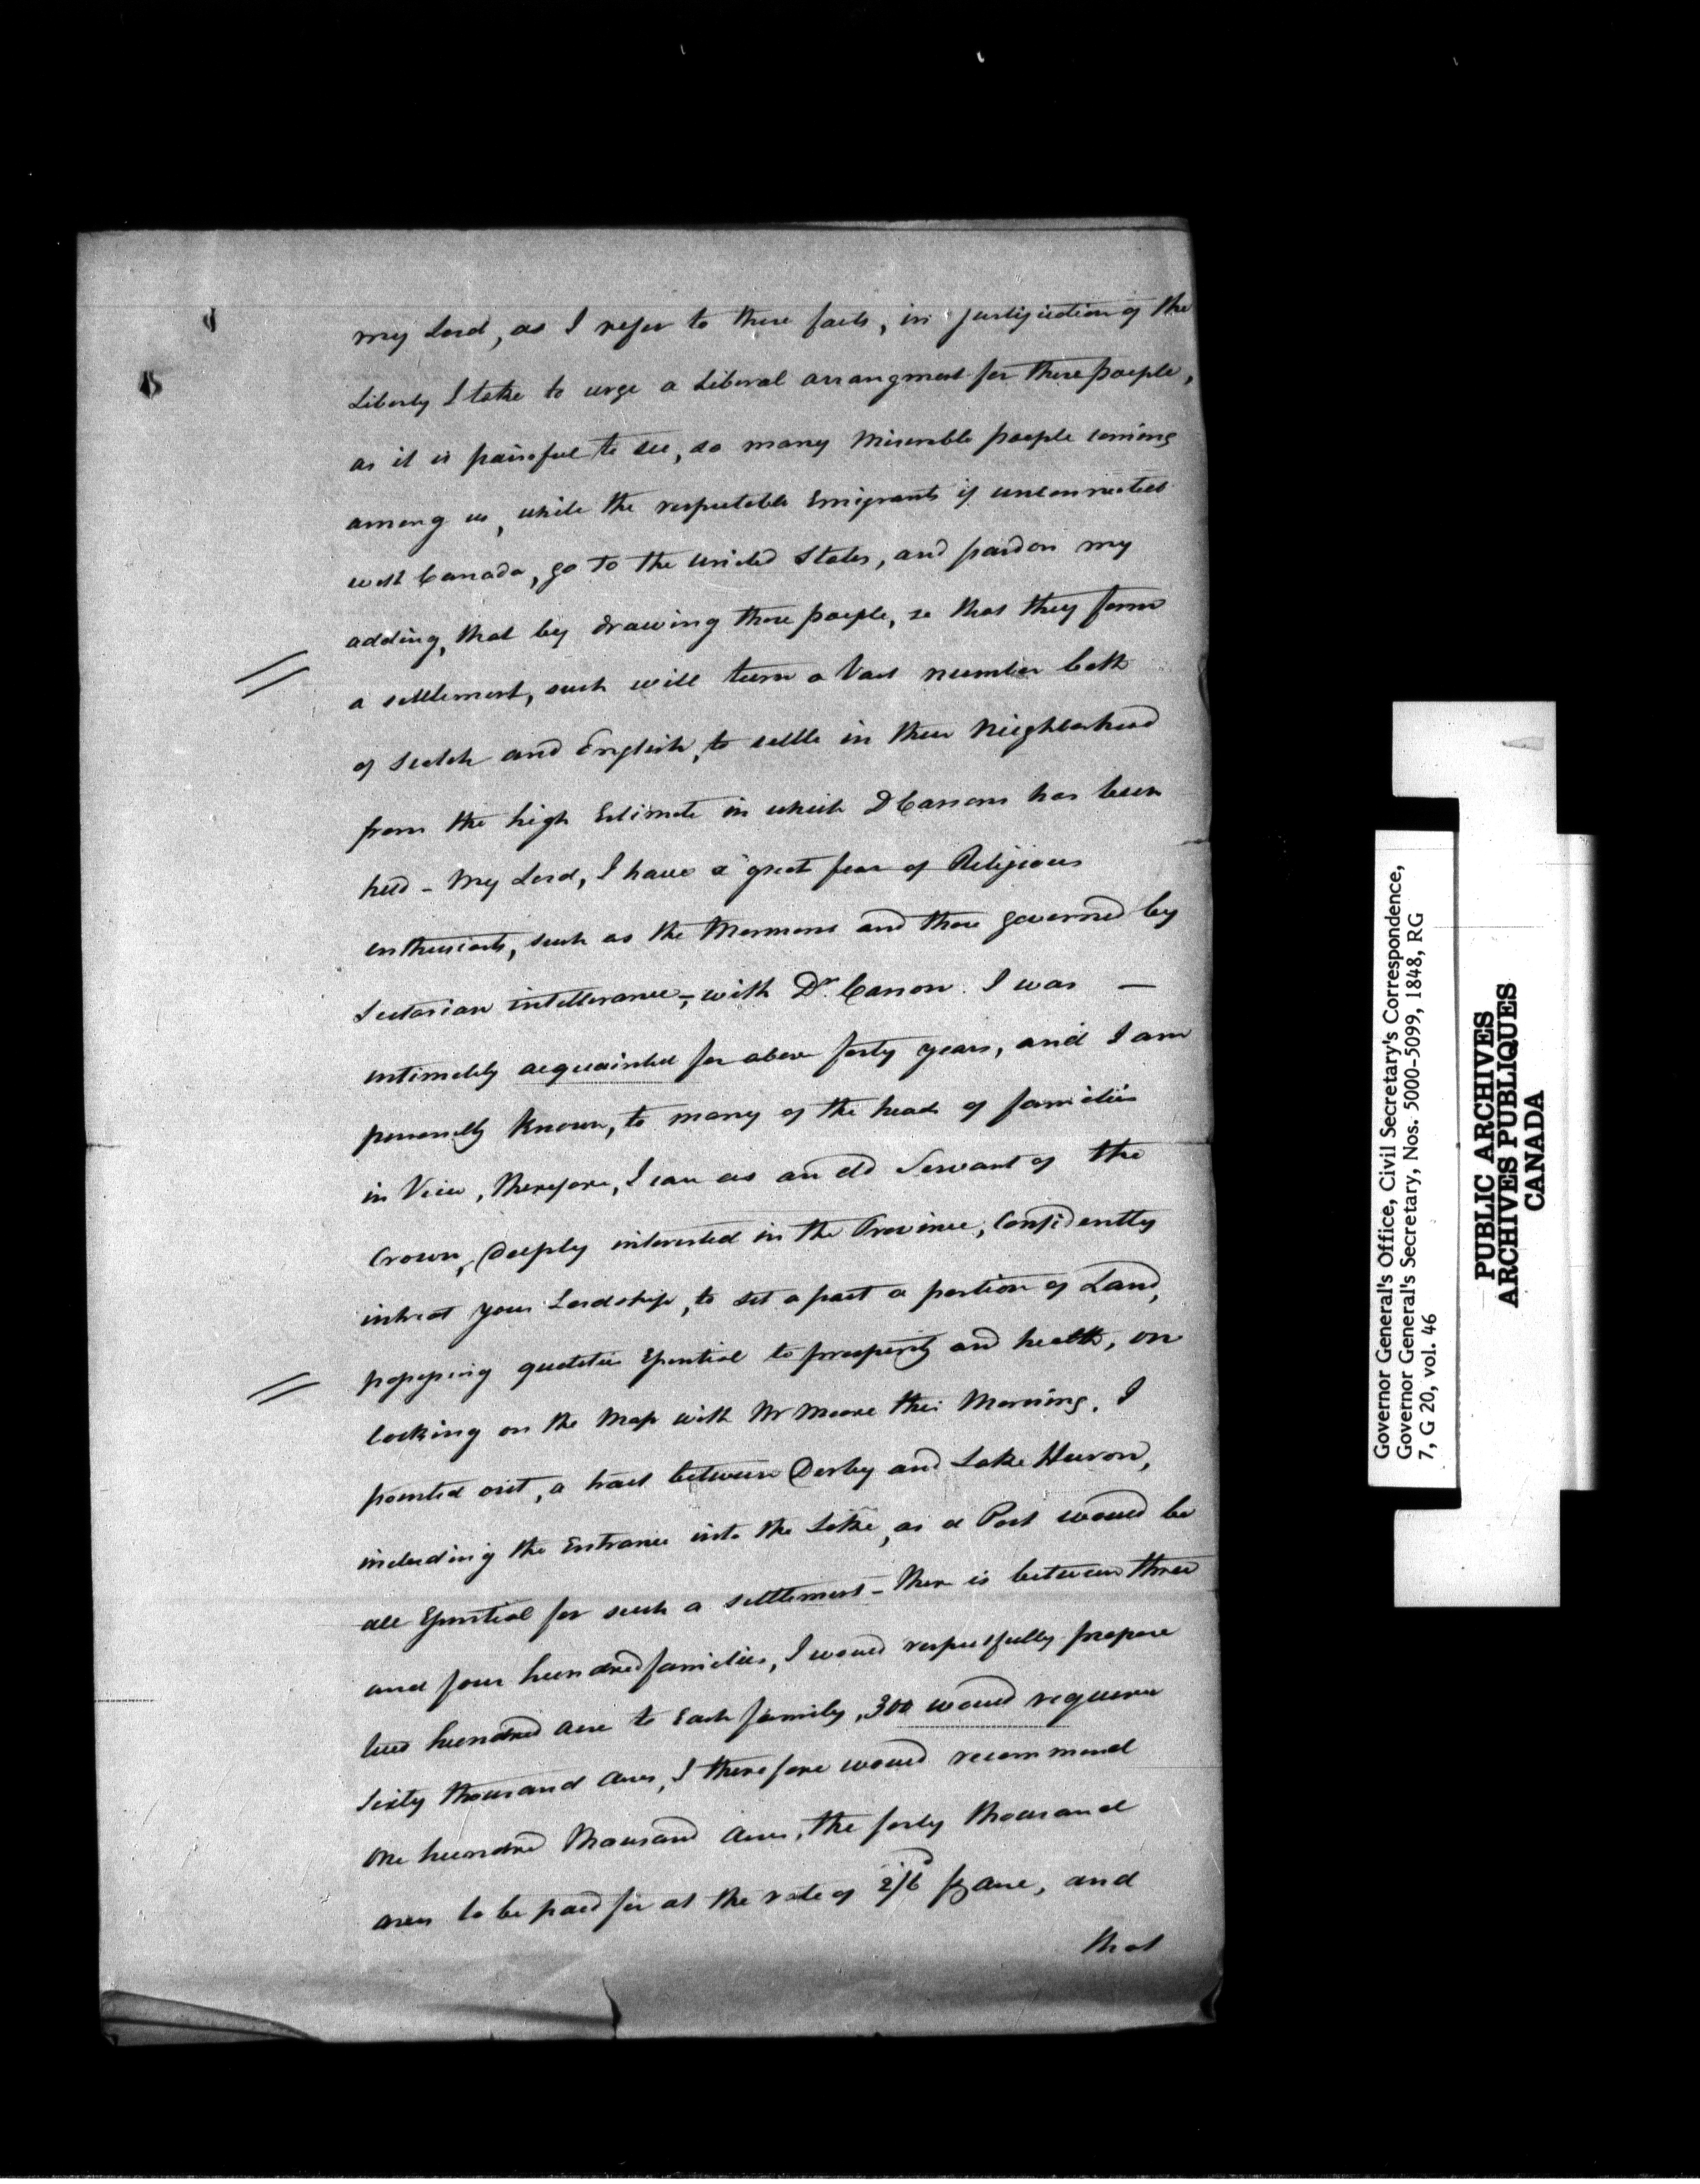 my Lord, as I refer to these facts, in justification of the
Liberty I take to urge a Liberal arrangment for these people,
as it is painful to see, so many Miserable people coming
among us, while the respectable Emigrants if unconnected
with Canada, go to the United States, and pardon my
adding, that by drawing these people, so that they form
a settlement, such will turn a Vast number both
of Scotch and English, to settle in their Neighborhood
from the high Estimate in which D Carson has been
held - My Lord, I have a great fear of Religious
enthusiasts, such as the Mormons and those governed by
Sectarian intollerance,- with Dr. Carson I was —
intimately acquainted for above forty years, and I am
personally Known, to many of the heads of families
in View, therefore, I can as an old Servant of the
Crown, Deeply interested in the Province, Confidently
intreat your Lordship, to set a part a portion of Land,
possessing qualities Essential to prosperity and health, on
looking on the Map with Mr Moore this Morning, I
pointed out, a tract between Derby and Lake Huron,
including the Entrance into the Lake, as a Port would be
all Essential for such a settlement - there is between three
and four hundred families, I would respectfully propose
two hundred acre to Each family, 300 would require
Sixty thousand acres, I therefore would recommend
One hundred thousand acres, the forty thousand
acres to be paid for at the rate of 2/6 p acre, and
that
Governor General's Office, Civil Secretary's Correspondence,
Governor General's Secretary, Nos. 5000-5099, 1848, RG
7, G 20, vol. 46
PUBLIC ARCHIVES
ARCHIVES PUBLIQUES
CANADA